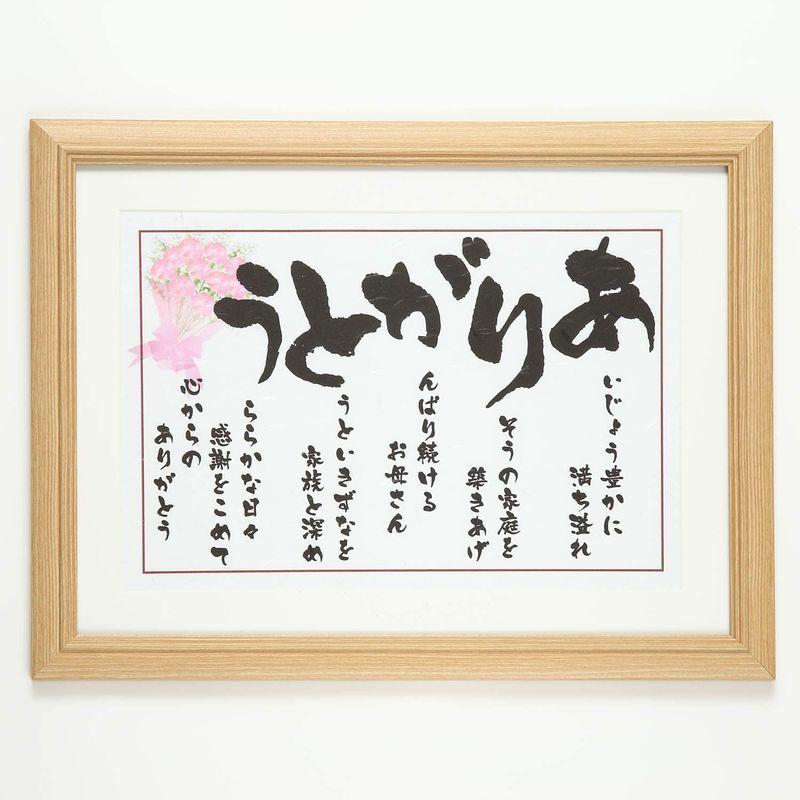 ありがとう
いじょう豊かに
満ち溢れ
そうの家庭を
築きあげ
んばり続ける
お母さん
うといきずなを
家族と深め
ららかな日々
感謝をこめて
心からの
ありがとう